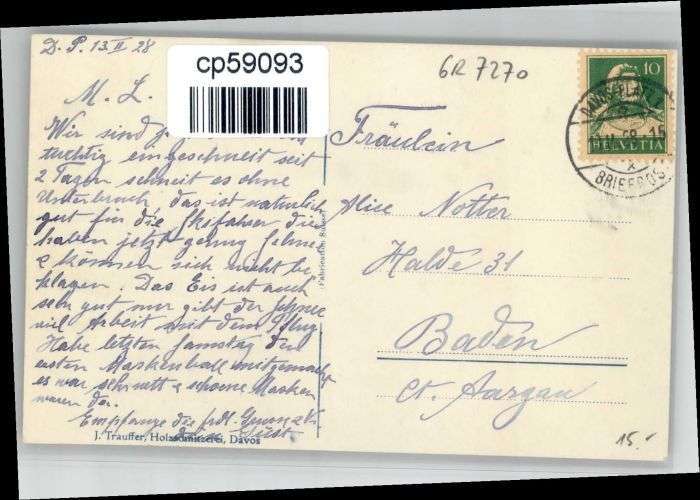 D. P. 13.II 28
cp59093
GR 7270
M. L.
Wir sind
tuchtig eingeschneit seit
2 Tagen schneit es ohne
Unterbruch, das ist natürlich
gut für die Skifahrer die
haben jetzt genug Schnee
& können sich nicht be
klagen. Das Eis ist auch
sehr gut nur gibt der Schnee
viel Arbeit mit dem Pflug
Habe letzten Samstag den
ersten Maskenball mitgemacht
es war sehr nett & schoene Masken
waren da.
Empfange die frdl.
J. Trauffer, Holzschnitzerei, Davos
Fräulein
Alice Notter
Halde 31
Baden
Ct. Aargau
10
HELVETIA
DAVOS-PLATZ
BRIEFPOST
15.-